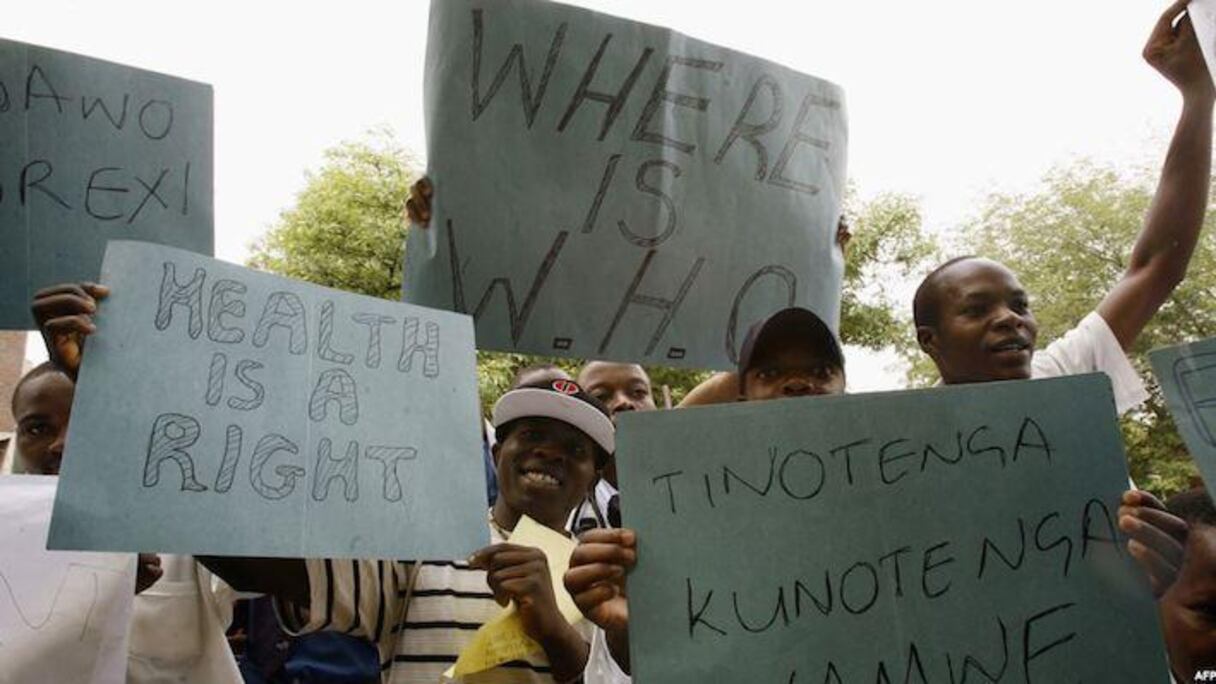 WHERE
IS
W.H.O
HEALTH
IS A
RIGHT
TINOTENGA
KUNOTENGA
AFP